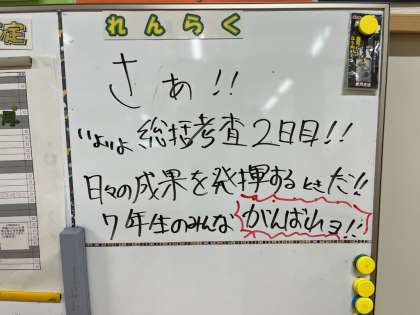 れんらく
定
さぁ!!
いよいよ総括考査2日目!!
日々の成果を発揮するときだ!!
7年生のみんながんばれヨ!!